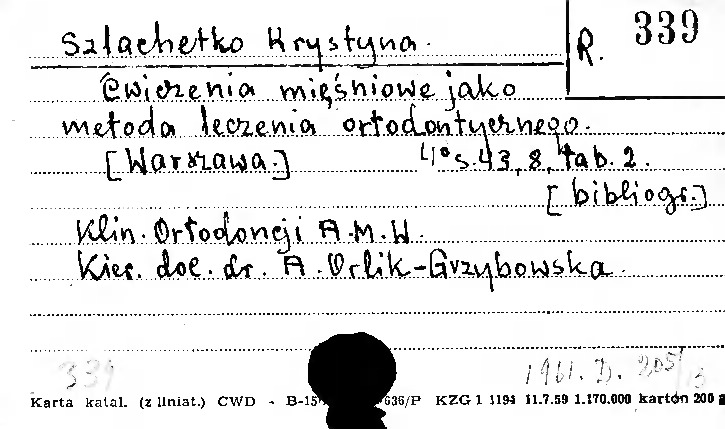 R. 339
Szlachetko Krystyna.
Ćwiczenia mięśniowe jako
metoda leczenia ortodontycznego.
[Warszawa.] 4° s.43, 8, tab. 2.
[bibliogr.]
Klin. Ortodoncji A.M.W.
Kier. doc. dr. A. Orlik-Grzybowska.
339
1961. D. 205/13
Karta katal. (z liniat.) CWD - B-15 636/P KZG 1 1194 11.7.59 1.170.000 karton 200 g